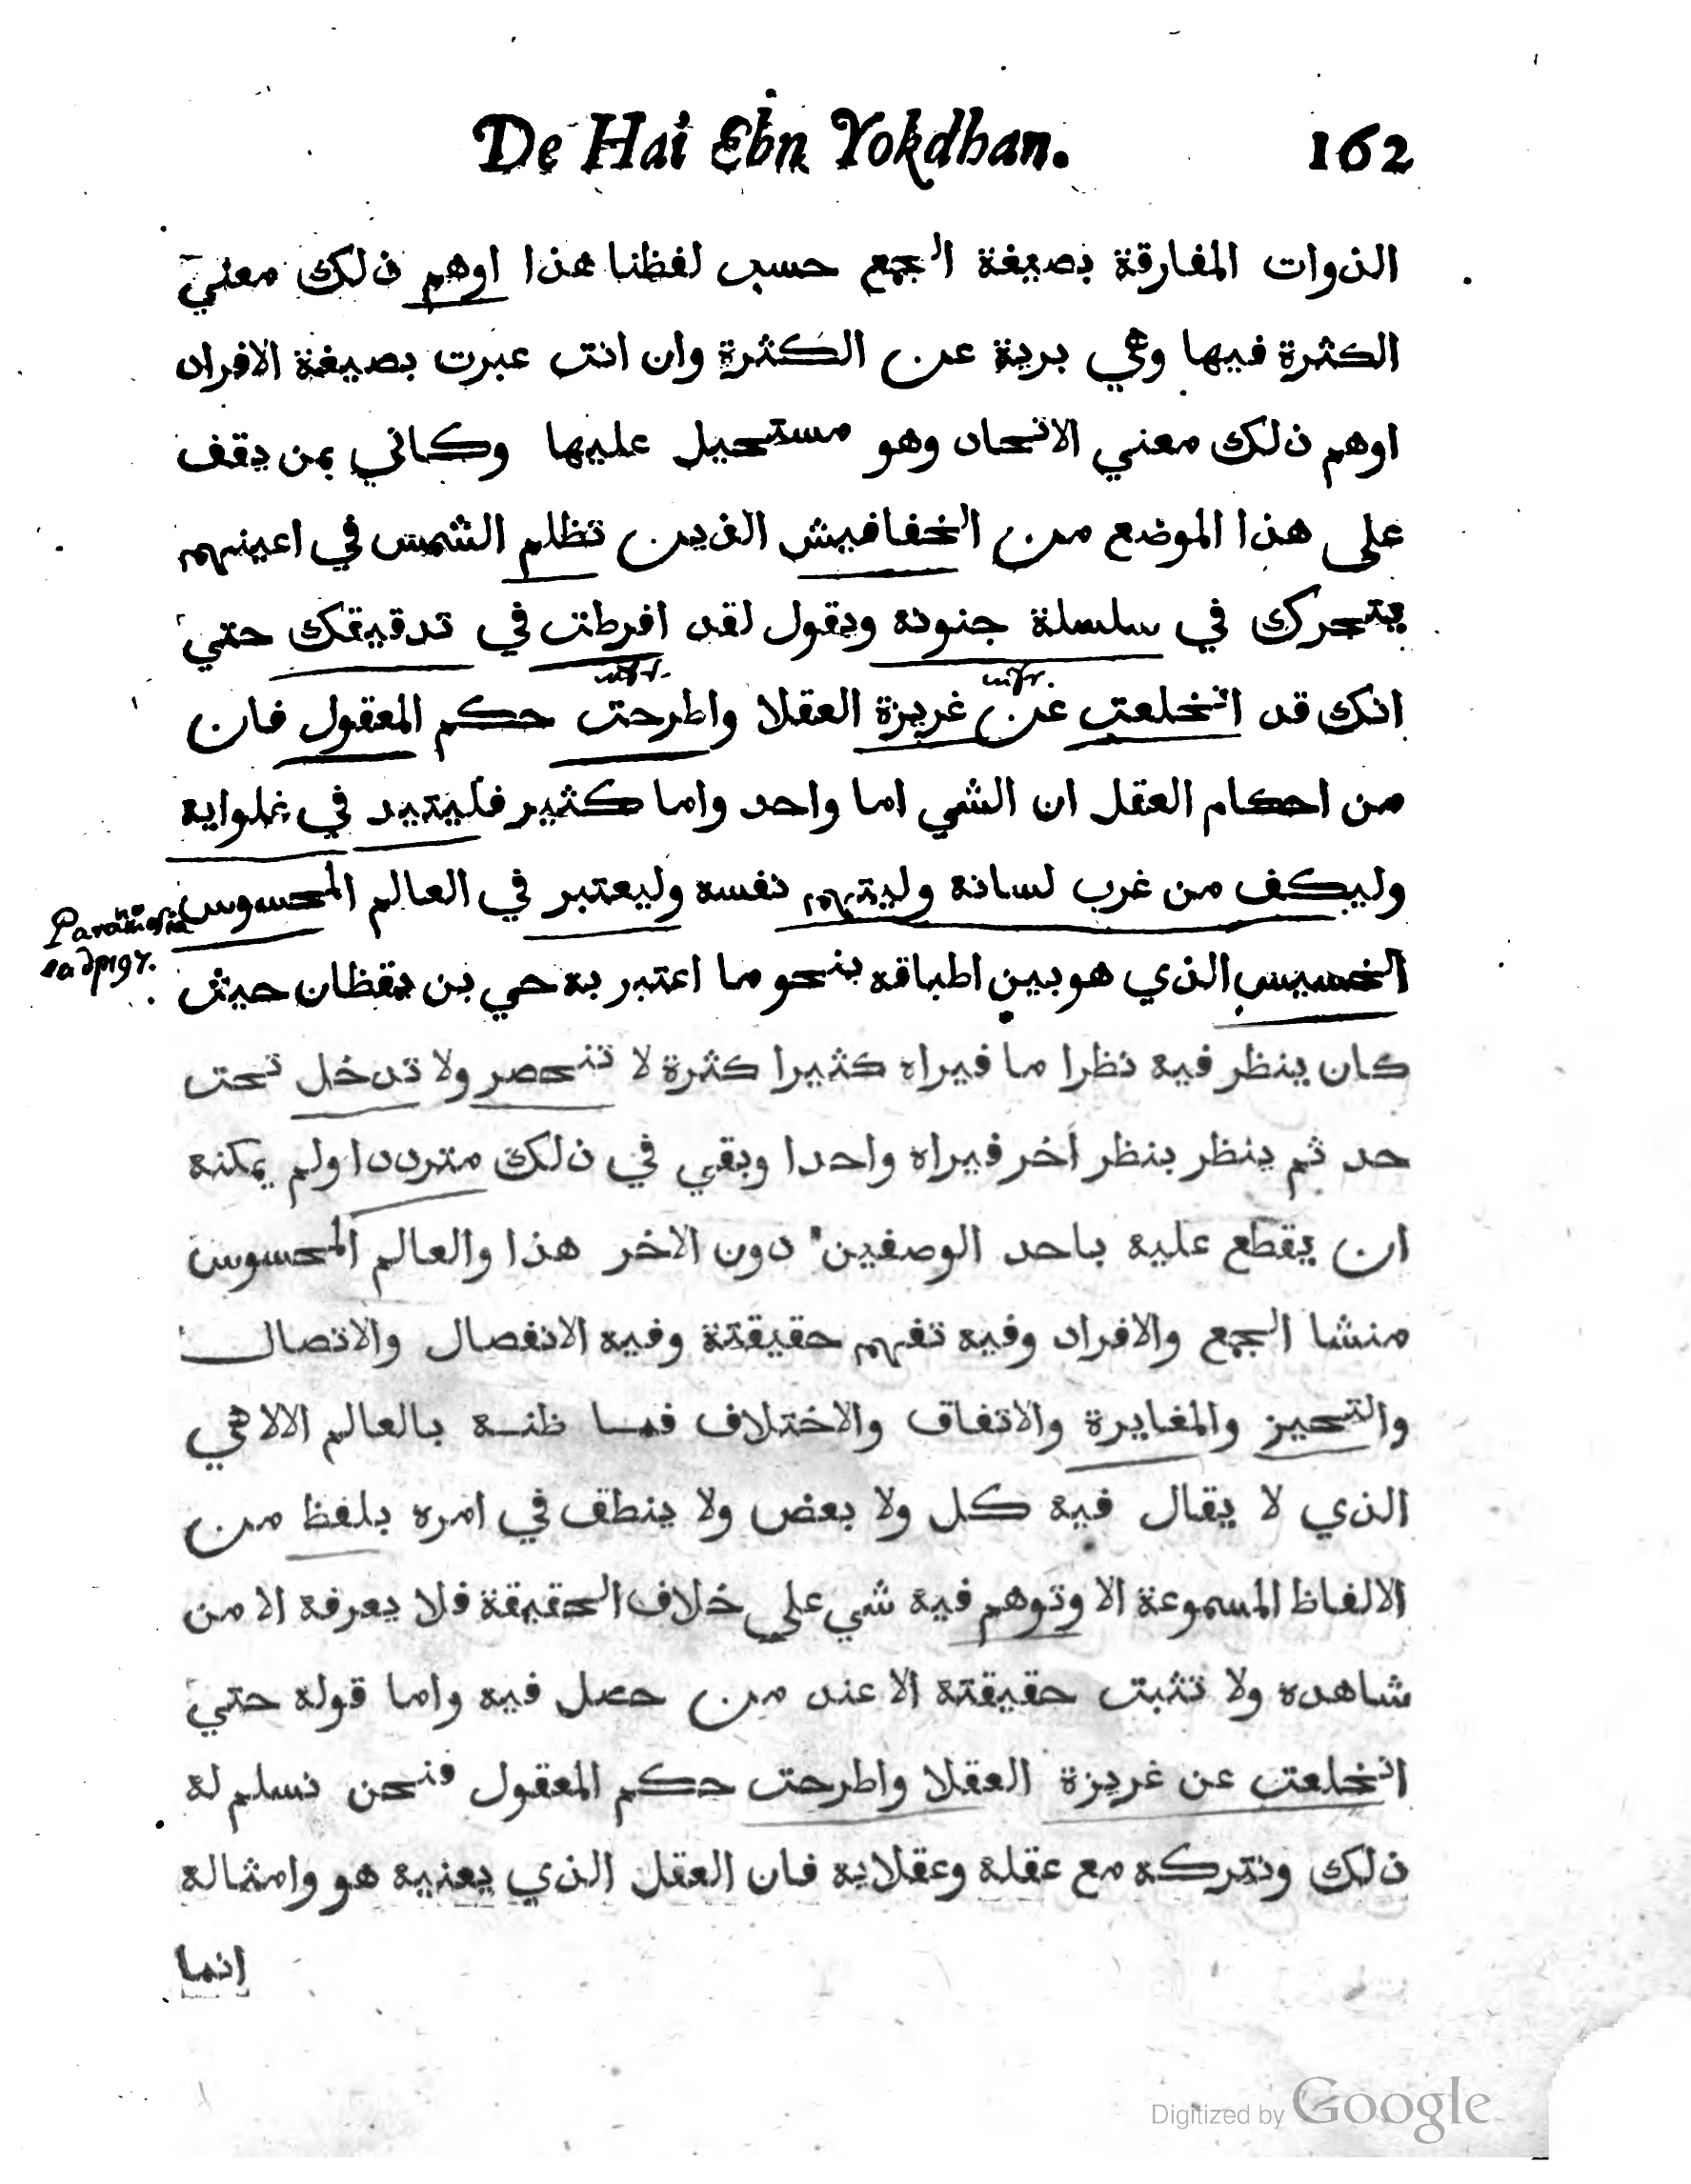 De Hai Ebn Yokdhan. 162
الذوات المفارقة بصيغة الجمع حسب لفظنا هذا اوهم ذلك معني
الكثرة فيها وهي برية عن الكثرة وان انت عبرت بصيغة الافراد
اوهم ذلك معني الاتحاد وهو مستحيل عليها وكاني بمن يقف
علي هذا الموضع من الخفافيش الذين تظلم الشمس في اعينهم
يتحرك في سلسلة جنونه ويقول لقد افرطت في تدقيقك حتي
انك قد انخلعت عن غريزة العقلا واطرحت حكم المعقول فان
من احكام العقل ان الشي اما واحد واما كثير فليتيد في غلوايه
وليكف من غرب لسانه وليتهم نفسه وليعتبر في العالم المحسوس
الخسيس الذي هو بين اطباقه بنحو ما اعتبر به حي بن يقظان حيث
كان ينظر فيه نظرا ما فيراه كثيرا كثرة لا تنحصر ولا تدخل تحت
حد ثم ينظر بنظر اخر فيراه واحدا وبقي في ذلك مترددا ولم يمكنه
ان يقطع عليه باحد الوصفين دون الاخر هذا والعالم المحسوس
منشا الجمع والافراد وفيه تفهم حقيقته وفيه الانفصال والاتصال
والتحيز والمغايرة والاتفاق والاختلاف فما ظنه بالعالم الالاهي
الذي لا يقال فيه كل ولا بعض ولا ينطق في امره بلفظ من
الالفاظ المسموعة الا وتوهم فيه شي علي خلاف الحقيقة فلا يعرفه الا من
شاهده ولا تثبت حقيقته الا عند من حصل فيه واما قوله حتي
انخلعت عن غريزة العقلا واطرحت حكم المعقول فنحن نسلم له
ذلك ونتركه مع عقله وعقلايه فان العقل الذي يعنيه هو وامثاله
انما
Digitized by Google